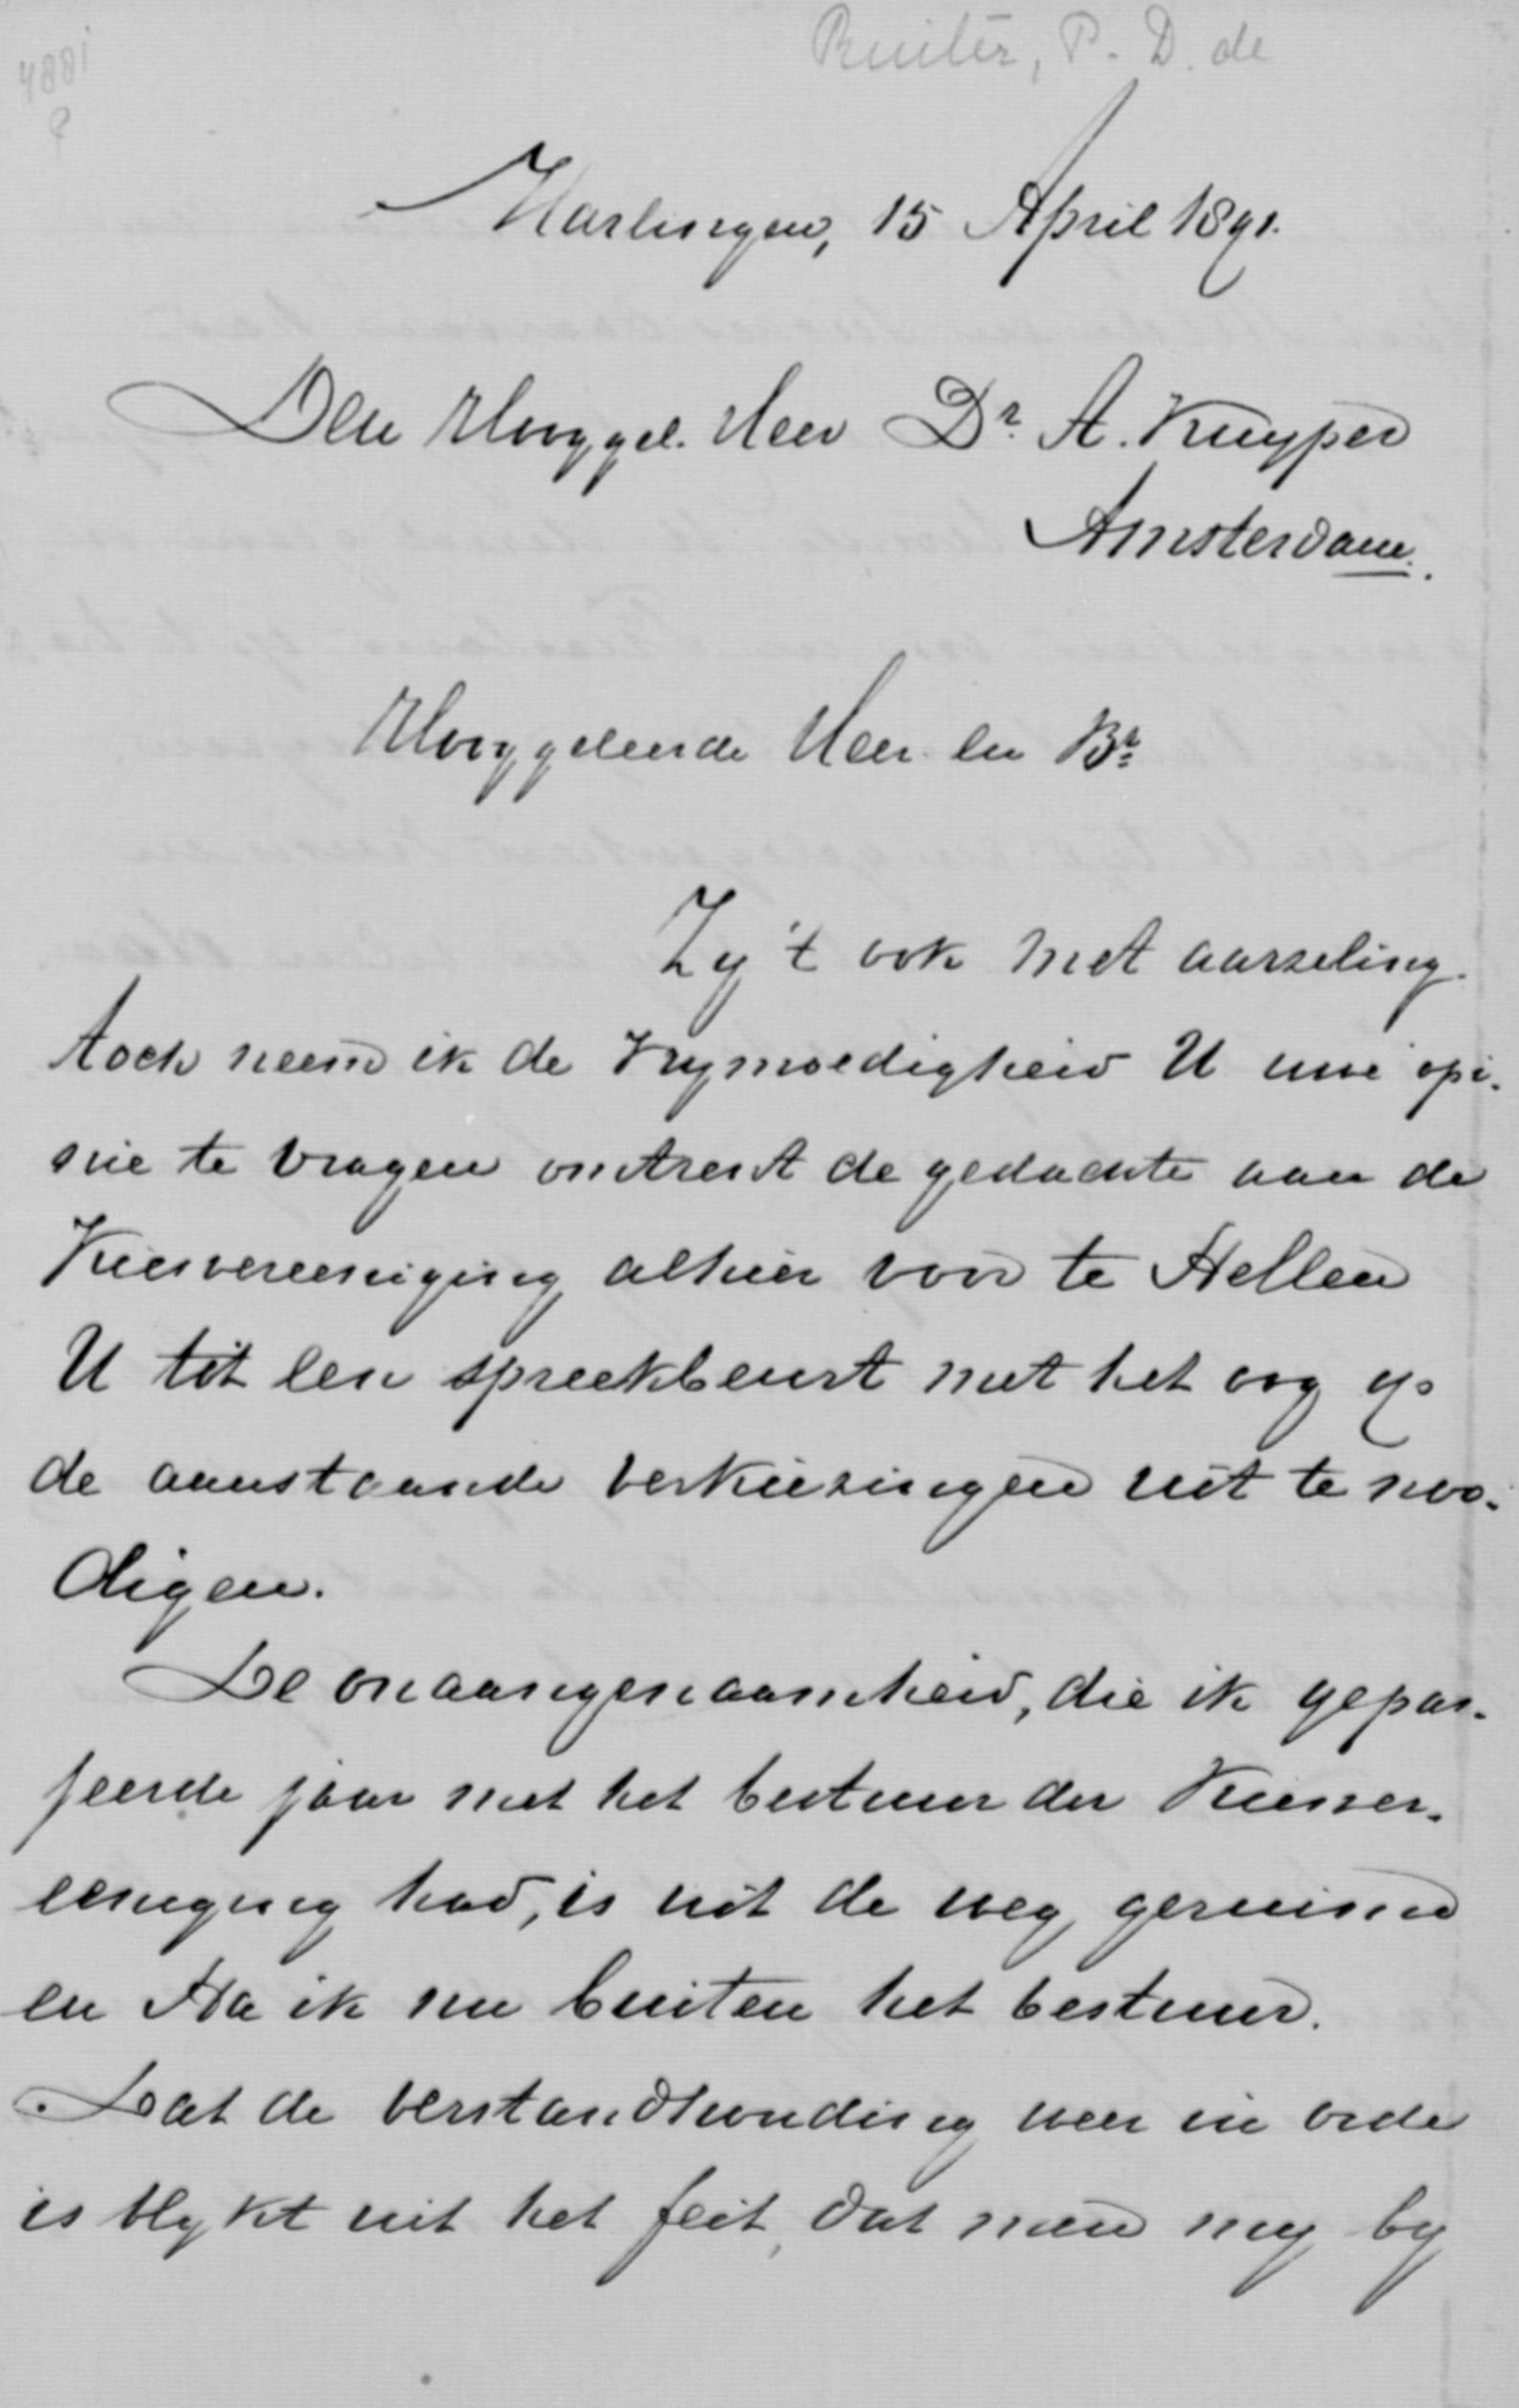 Ruiter, P. D. de
4881
Harlingen, 15 April 1891.
Den Hooggel. Heer Dr. A. Kuyper
Amsterdam.
Hooggeleerde Heer en Br.
Zy 't ook met aarzeling
toch neem ik de vrymoedigheid U uwe opi-
nie te vragen omtrent de gedachte aan de
Kiesvereeniging alhier voor te stellen
U tot een spreekbeurt met het oog op
de aanstaande verkiezingen uit te noo-
digen.
De onaangenaamheid, die ik gepas-
seerde jaar met het bestuur der Kiesver-
eeniging had, is uit de weg geruimd
en sta ik nu buiten het bestuur.
Dat de verstandhouding weer in orde
is blykt uit het feit, dat men my by